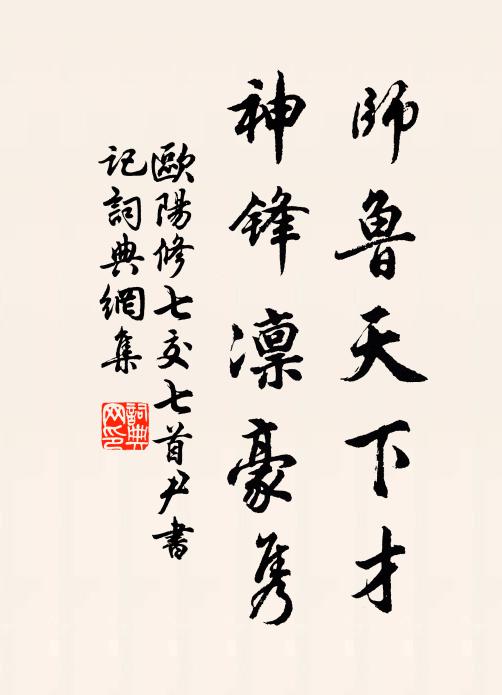 師魯天下才
神鋒凜豪隽
歐陽修七交七首尹書
記詞典網集
詞典网印